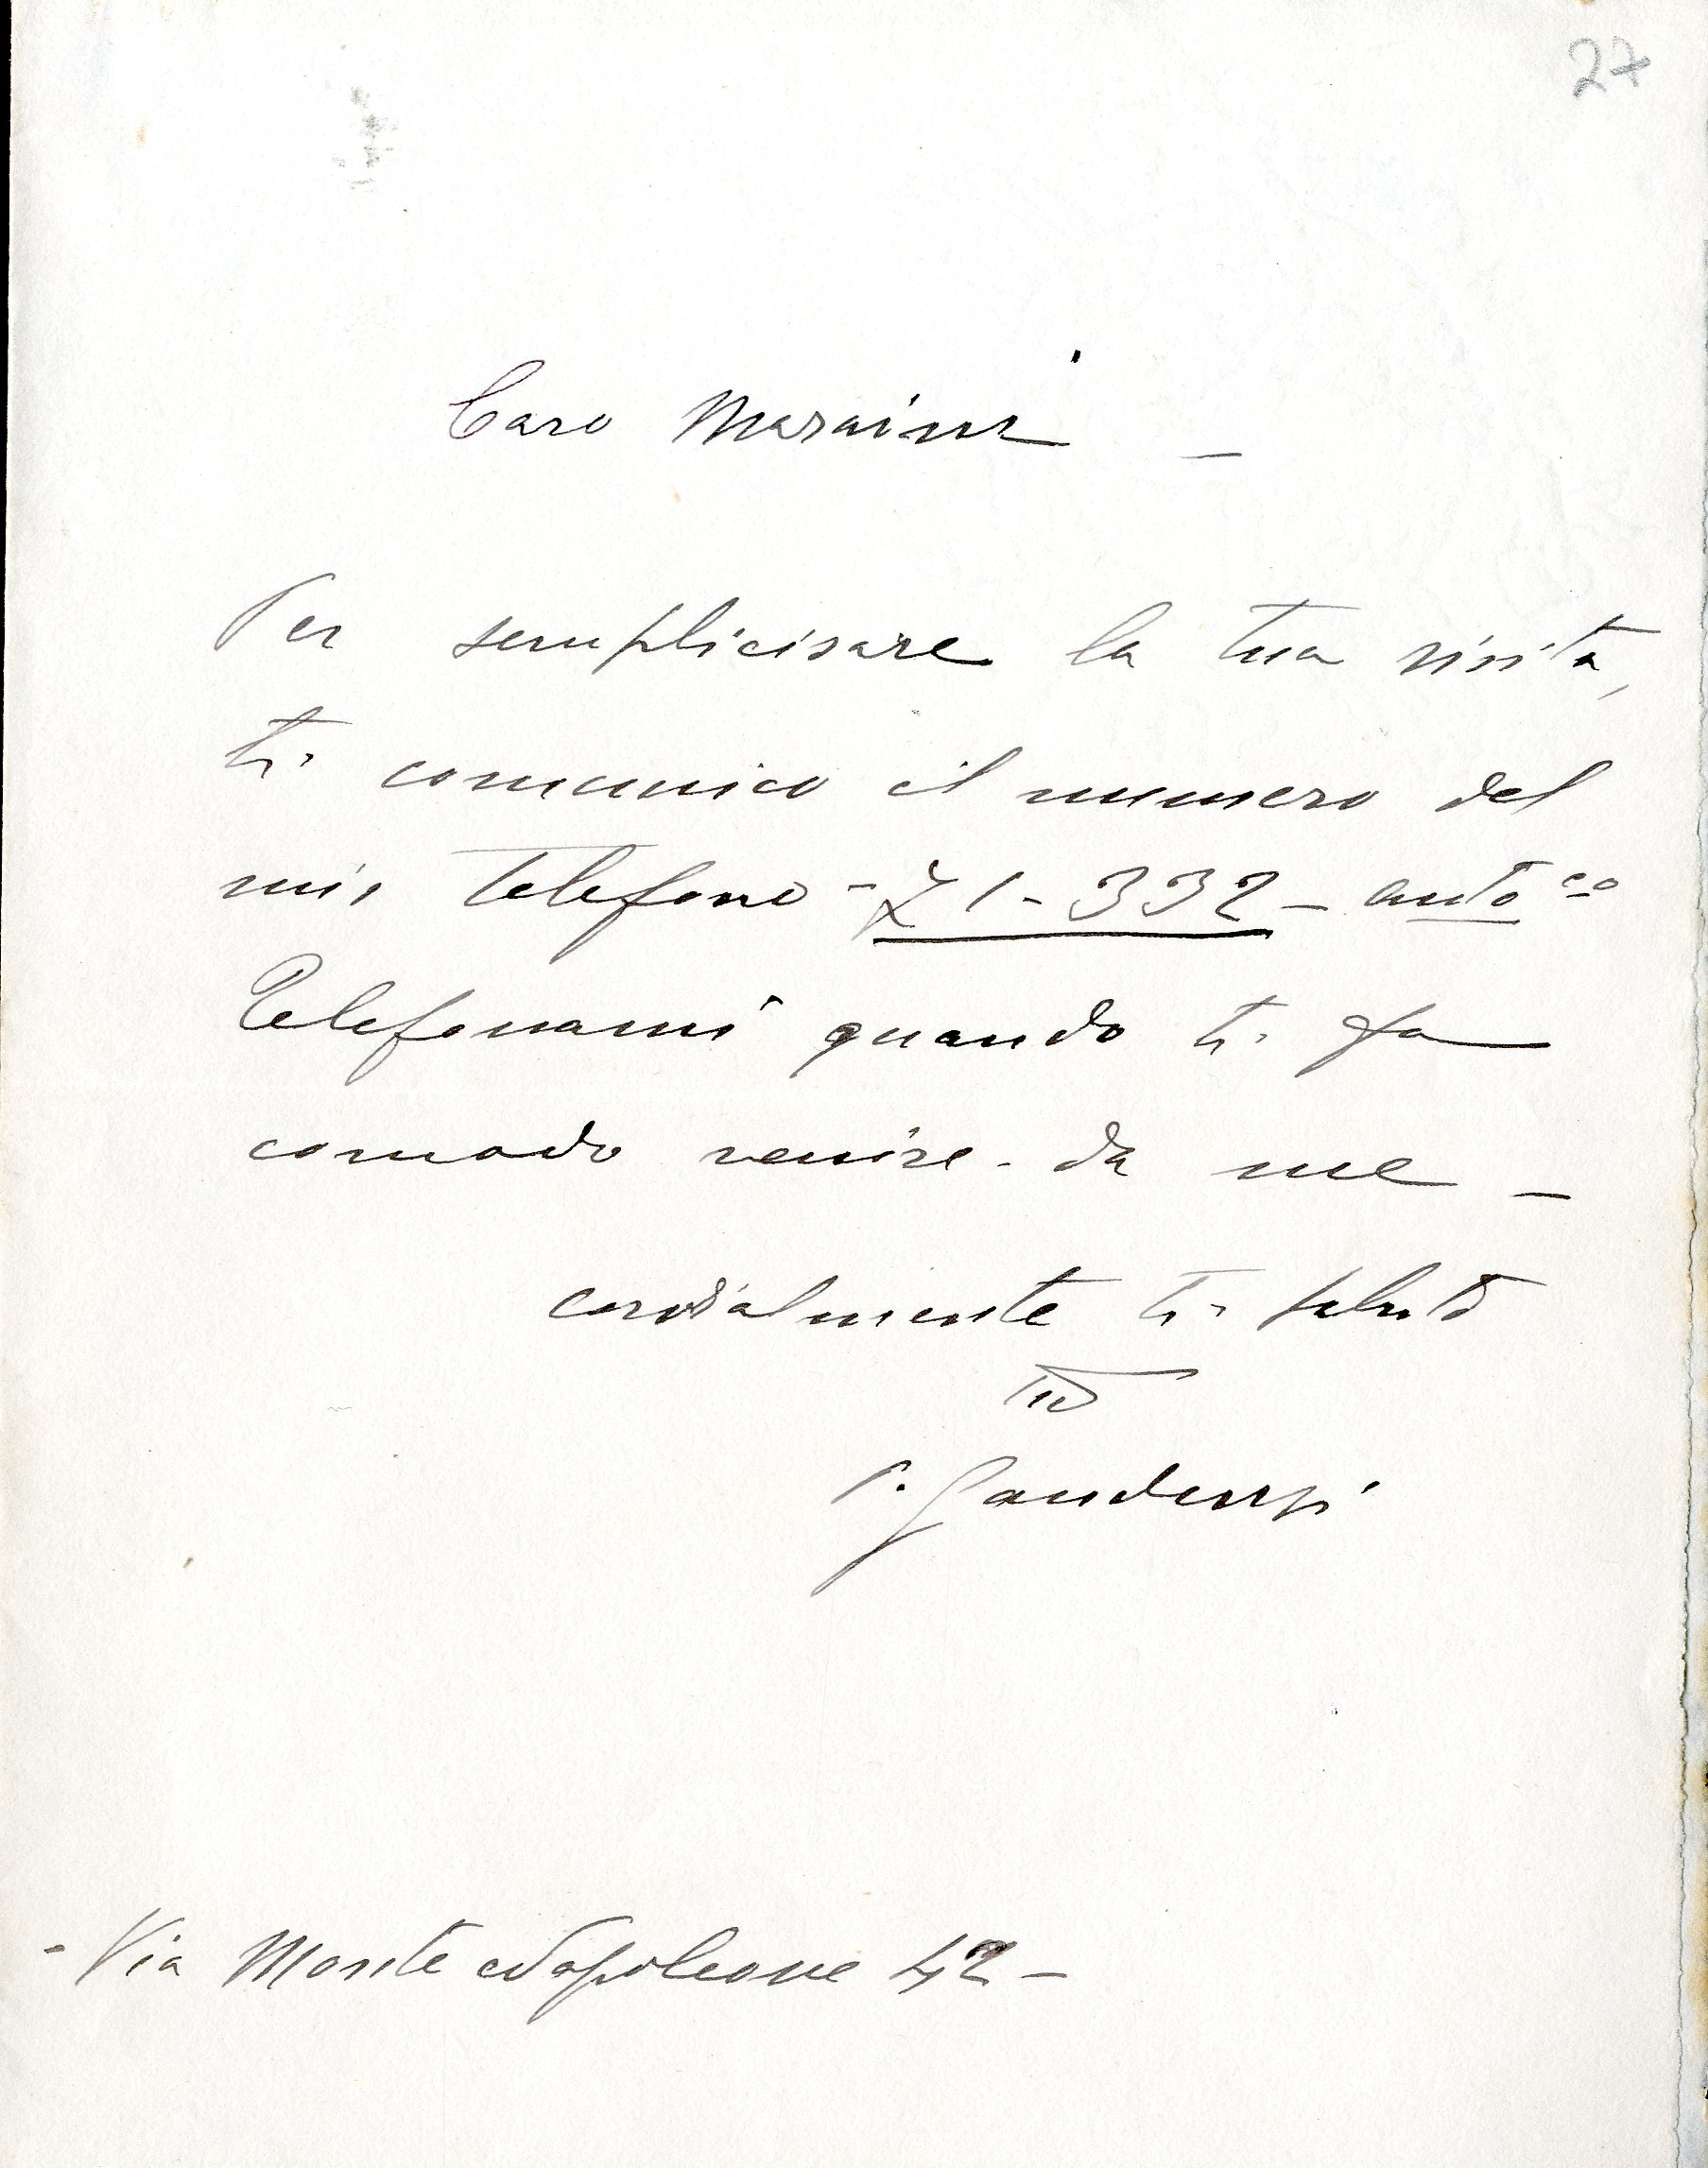 27
Caro Maraini –
Per semplicisare la tua visita,
ti comunico il numero del
mio telefono – 71-332 – auto co
Telefonami quando ti fa
comodo venire da me –
cordialmente ti saluto
tuo
P. Gaudenzi
– Via Monte Napoleone 42 –